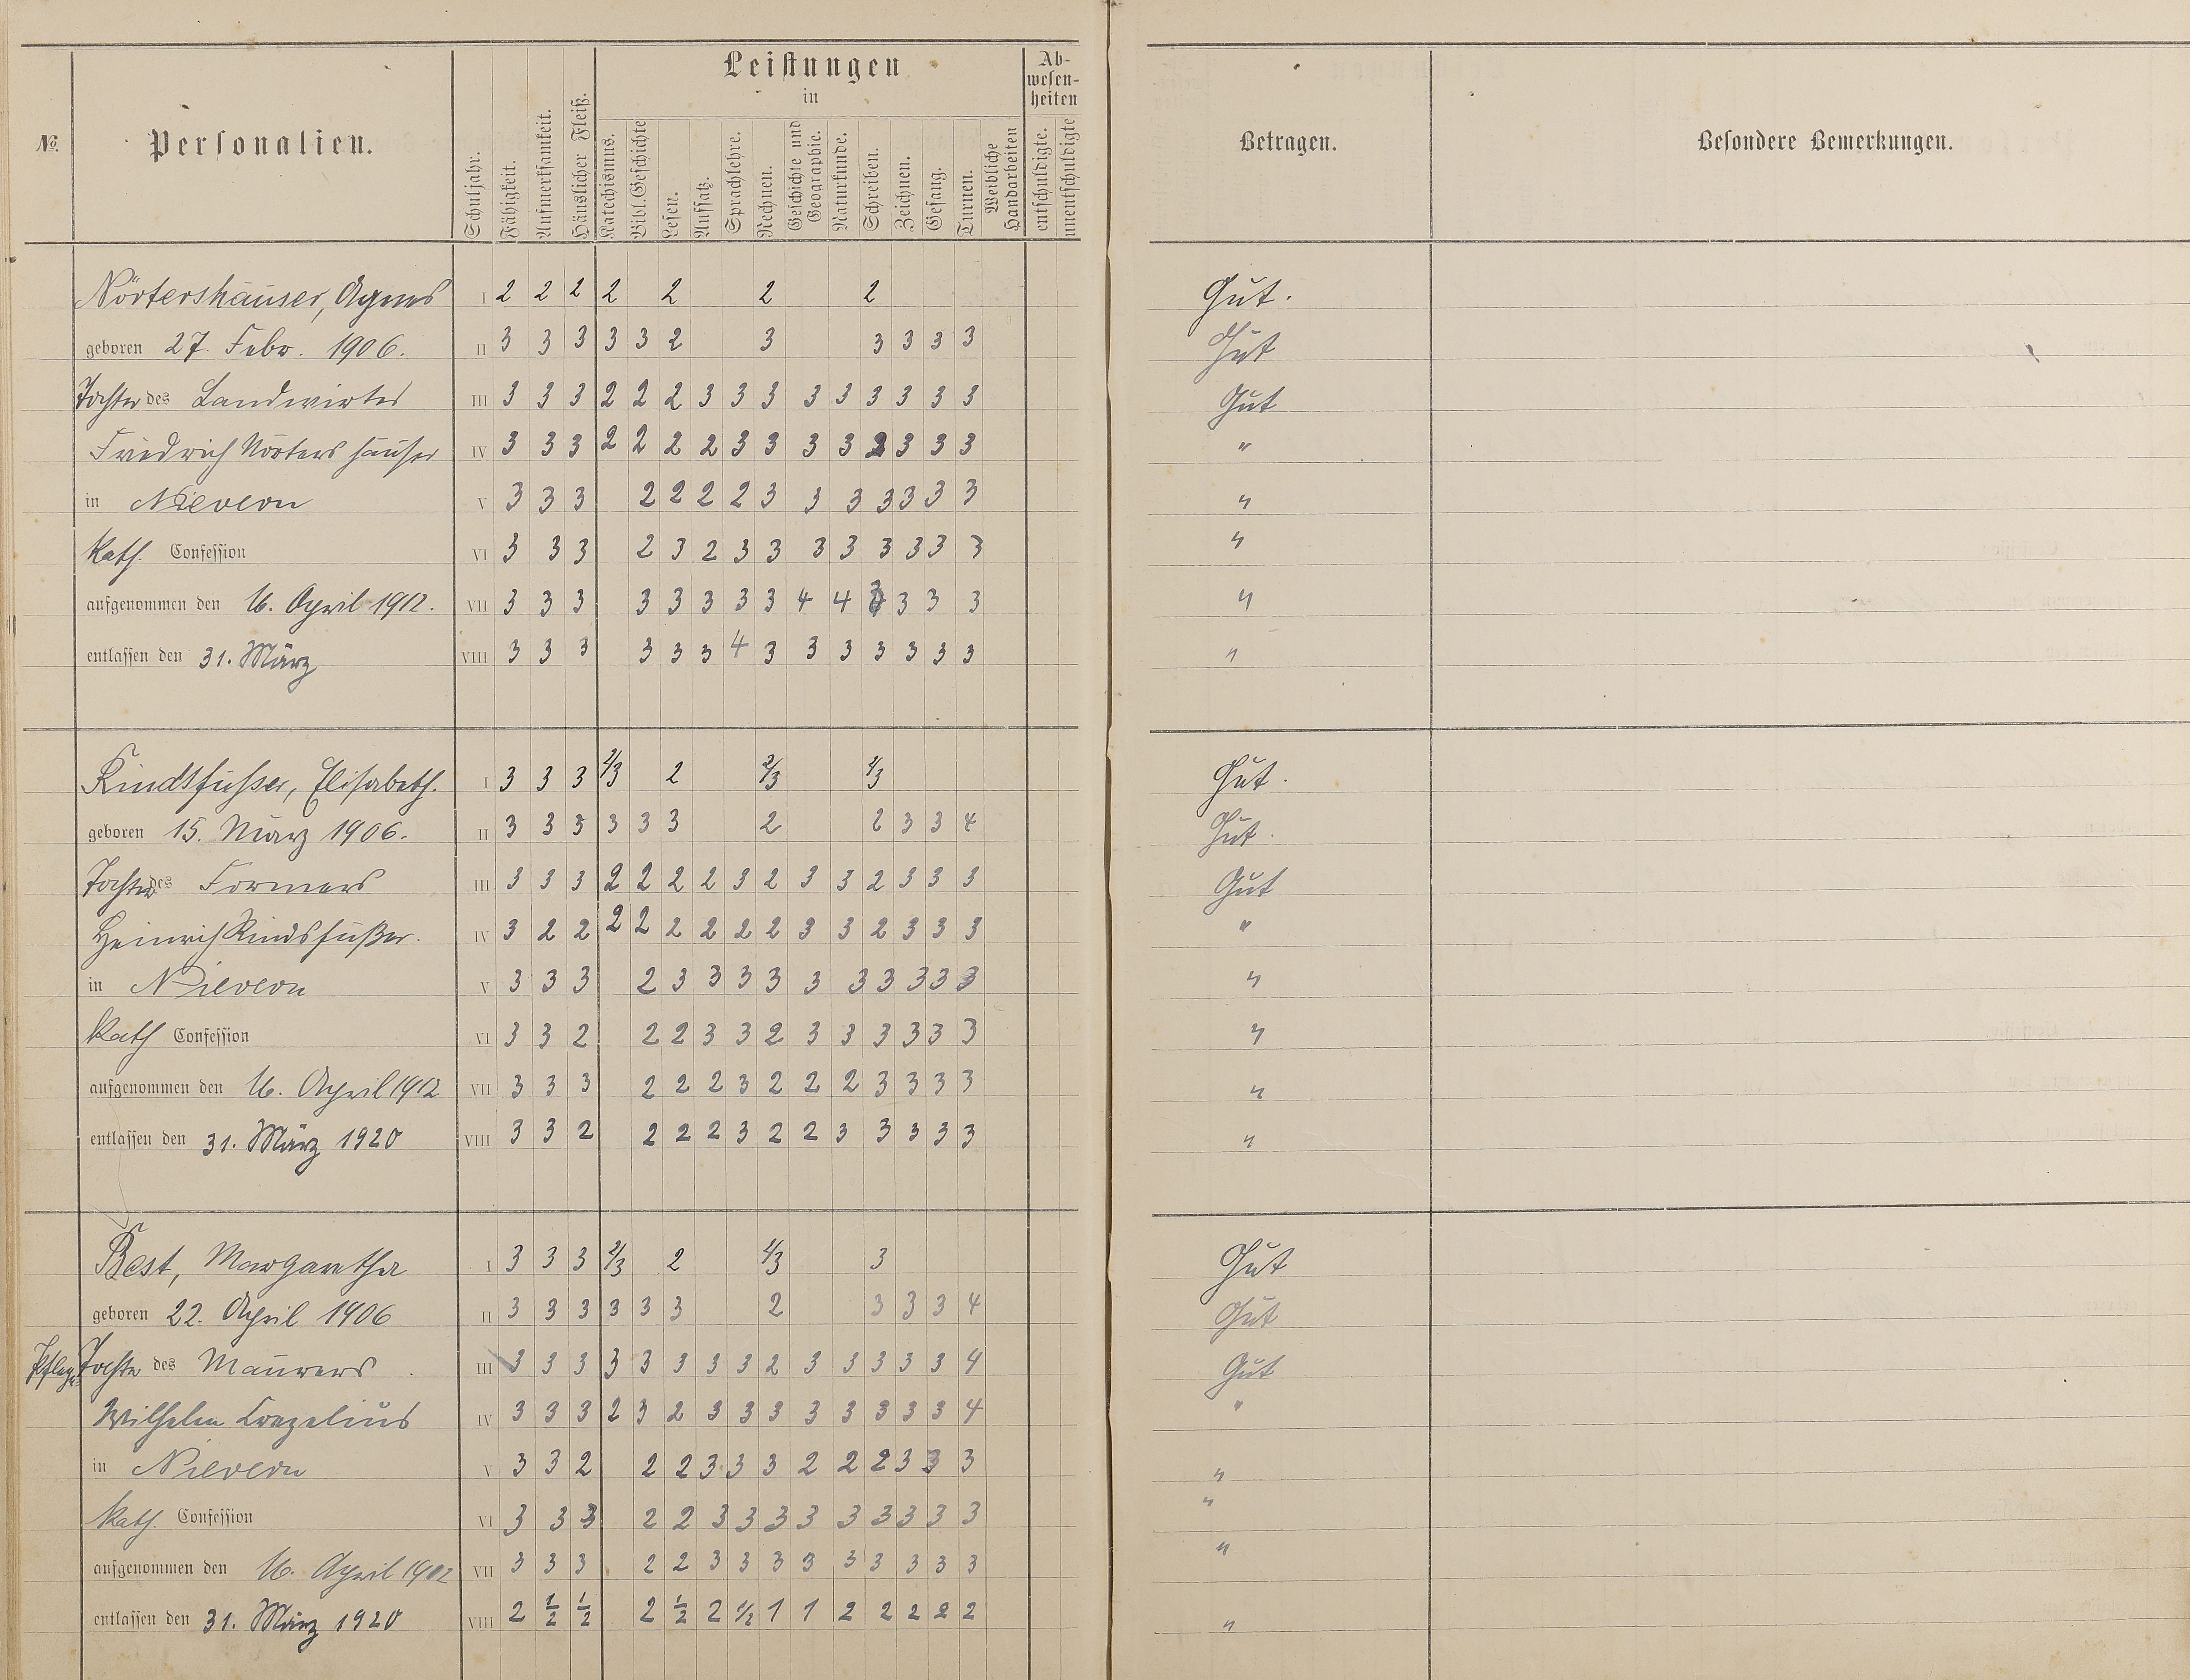 Leistungen
in
Ab-
wesen-
heiten
No.
Personalien.
Schuljahr.
Fähigkeit.
Aufmerksamkeit.
Häuslicher Fleiß.
Katechismus.
Bibl. Geschichte
Lesen.
Aufsatz.
Sprachlehre.
Rechnen.
Geschichte und
Geographie.
Naturkunde.
Schreiben.
Zeichnen.
Gesang.
Turnen.
Weibliche
Handarbeiten
entschuldigte.
unentschuldigte
Betragen.
Besondere Bemerkungen.
Nörtershäuser, Agnes I 2 2 2 2 2 2 2 Gut.
geboren 27. Febr. 1906. II 3 3 3 3 3 2 3 3 3 3 3 Gut
Tochter des Landwirtes III 3 3 3 2 2 2 3 3 3 3 3 3 3 3 3 Gut
Friedrich Nörtershäuser IV 3 3 3 2 2 2 2 3 3 3 3 2 3 3 3 "
in Nievern V 3 3 3 2 2 2 2 3 3 3 3 3 3 3 "
Kath. Confession VI 3 3 3 2 3 2 3 3 3 3 3 3 3 3 "
aufgenommen den 16. April 1912. VII 3 3 3 3 3 3 3 3 4 4 3 3 3 3 "
entlassen den 31. März VIII 3 3 3 3 3 3 4 3 3 3 3 3 3 3 "
Kindsfüsser, Elisabeth. I 3 3 3 2/3 2 2/3 2/3 Gut.
geboren 15. März 1906. II 3 3 3 3 3 3 2 2 3 3 4 Gut.
Tochter des Formers III 3 3 3 2 2 2 2 3 2 3 3 2 3 3 3 Gut
Heinrich Kindsfüßer. IV 3 2 2 2 2 2 2 2 2 3 3 2 3 3 3 "
in Nievern V 3 3 3 2 3 3 3 3 3 3 3 3 3 3 "
Kath Confession VI 3 3 2 2 2 3 3 2 3 3 3 3 3 3 "
aufgenommen den 16. April 1912 VII 3 3 3 2 2 2 3 2 2 2 3 3 3 3 "
entlassen den 31. März 1920 VIII 3 3 2 2 2 2 3 2 2 3 3 3 3 3 "
Best, Margaretha I 3 3 3 2/3 2 2/3 3 Gut
geboren 22. April 1906 II 3 3 3 3 3 3 2 3 3 3 4 Gut
Pflege= Tochter des Maurers III 3 3 3 3 3 3 3 3 2 3 3 3 3 3 4 Gut
Wilhelm IV 3 3 3 2 3 2 3 3 3 3 3 3 3 3 4 "
in Nievern V 3 3 2 2 2 3 3 3 2 2 2 3 3 3 "
Kath. Confession VI 3 3 3 2 2 3 3 3 3 3 3 3 3 3 "
aufgenommen den 16. April 1912 VII 3 3 3 2 2 3 3 3 3 3 3 3 3 3 "
entlassen den 31. März 1920 VIII 2 1/2 1/2 2 1/2 2 1/2 1 1 2 2 2 2 2 "